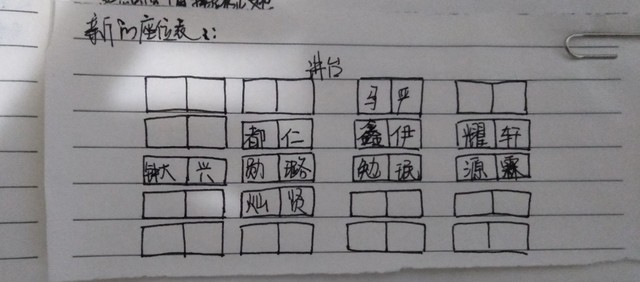 新的座位表2:
讲台
马 严
都 仁 鑫 伊 耀 轩
钟大 兴 勋 璐 勉 珉 源 霖
灿 贤